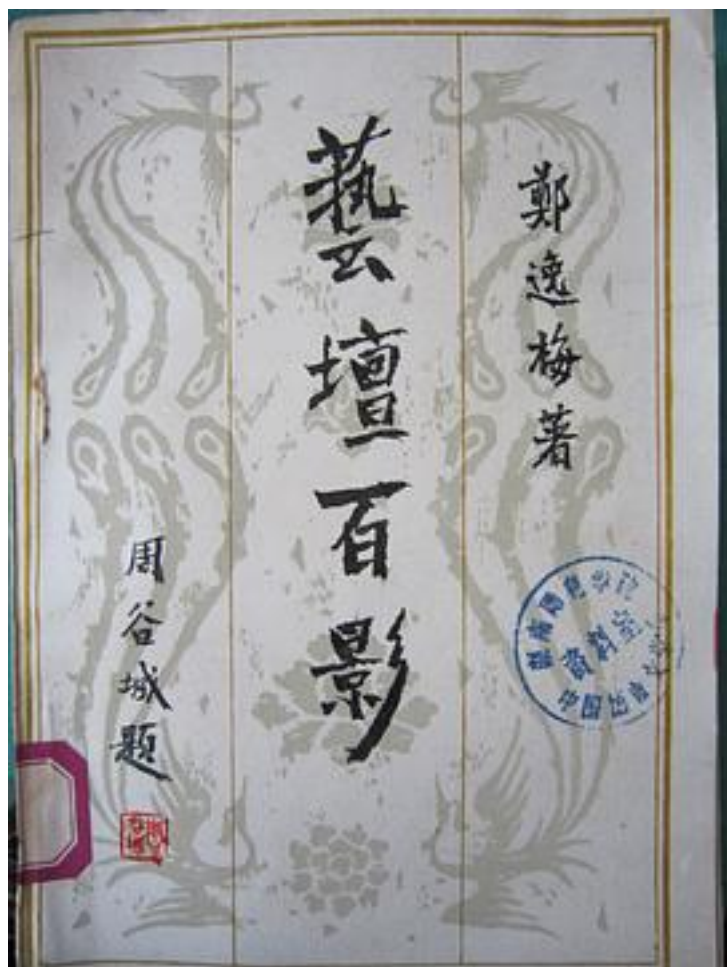 鄭逸梅著
藝壇百影
周谷城題
資料室